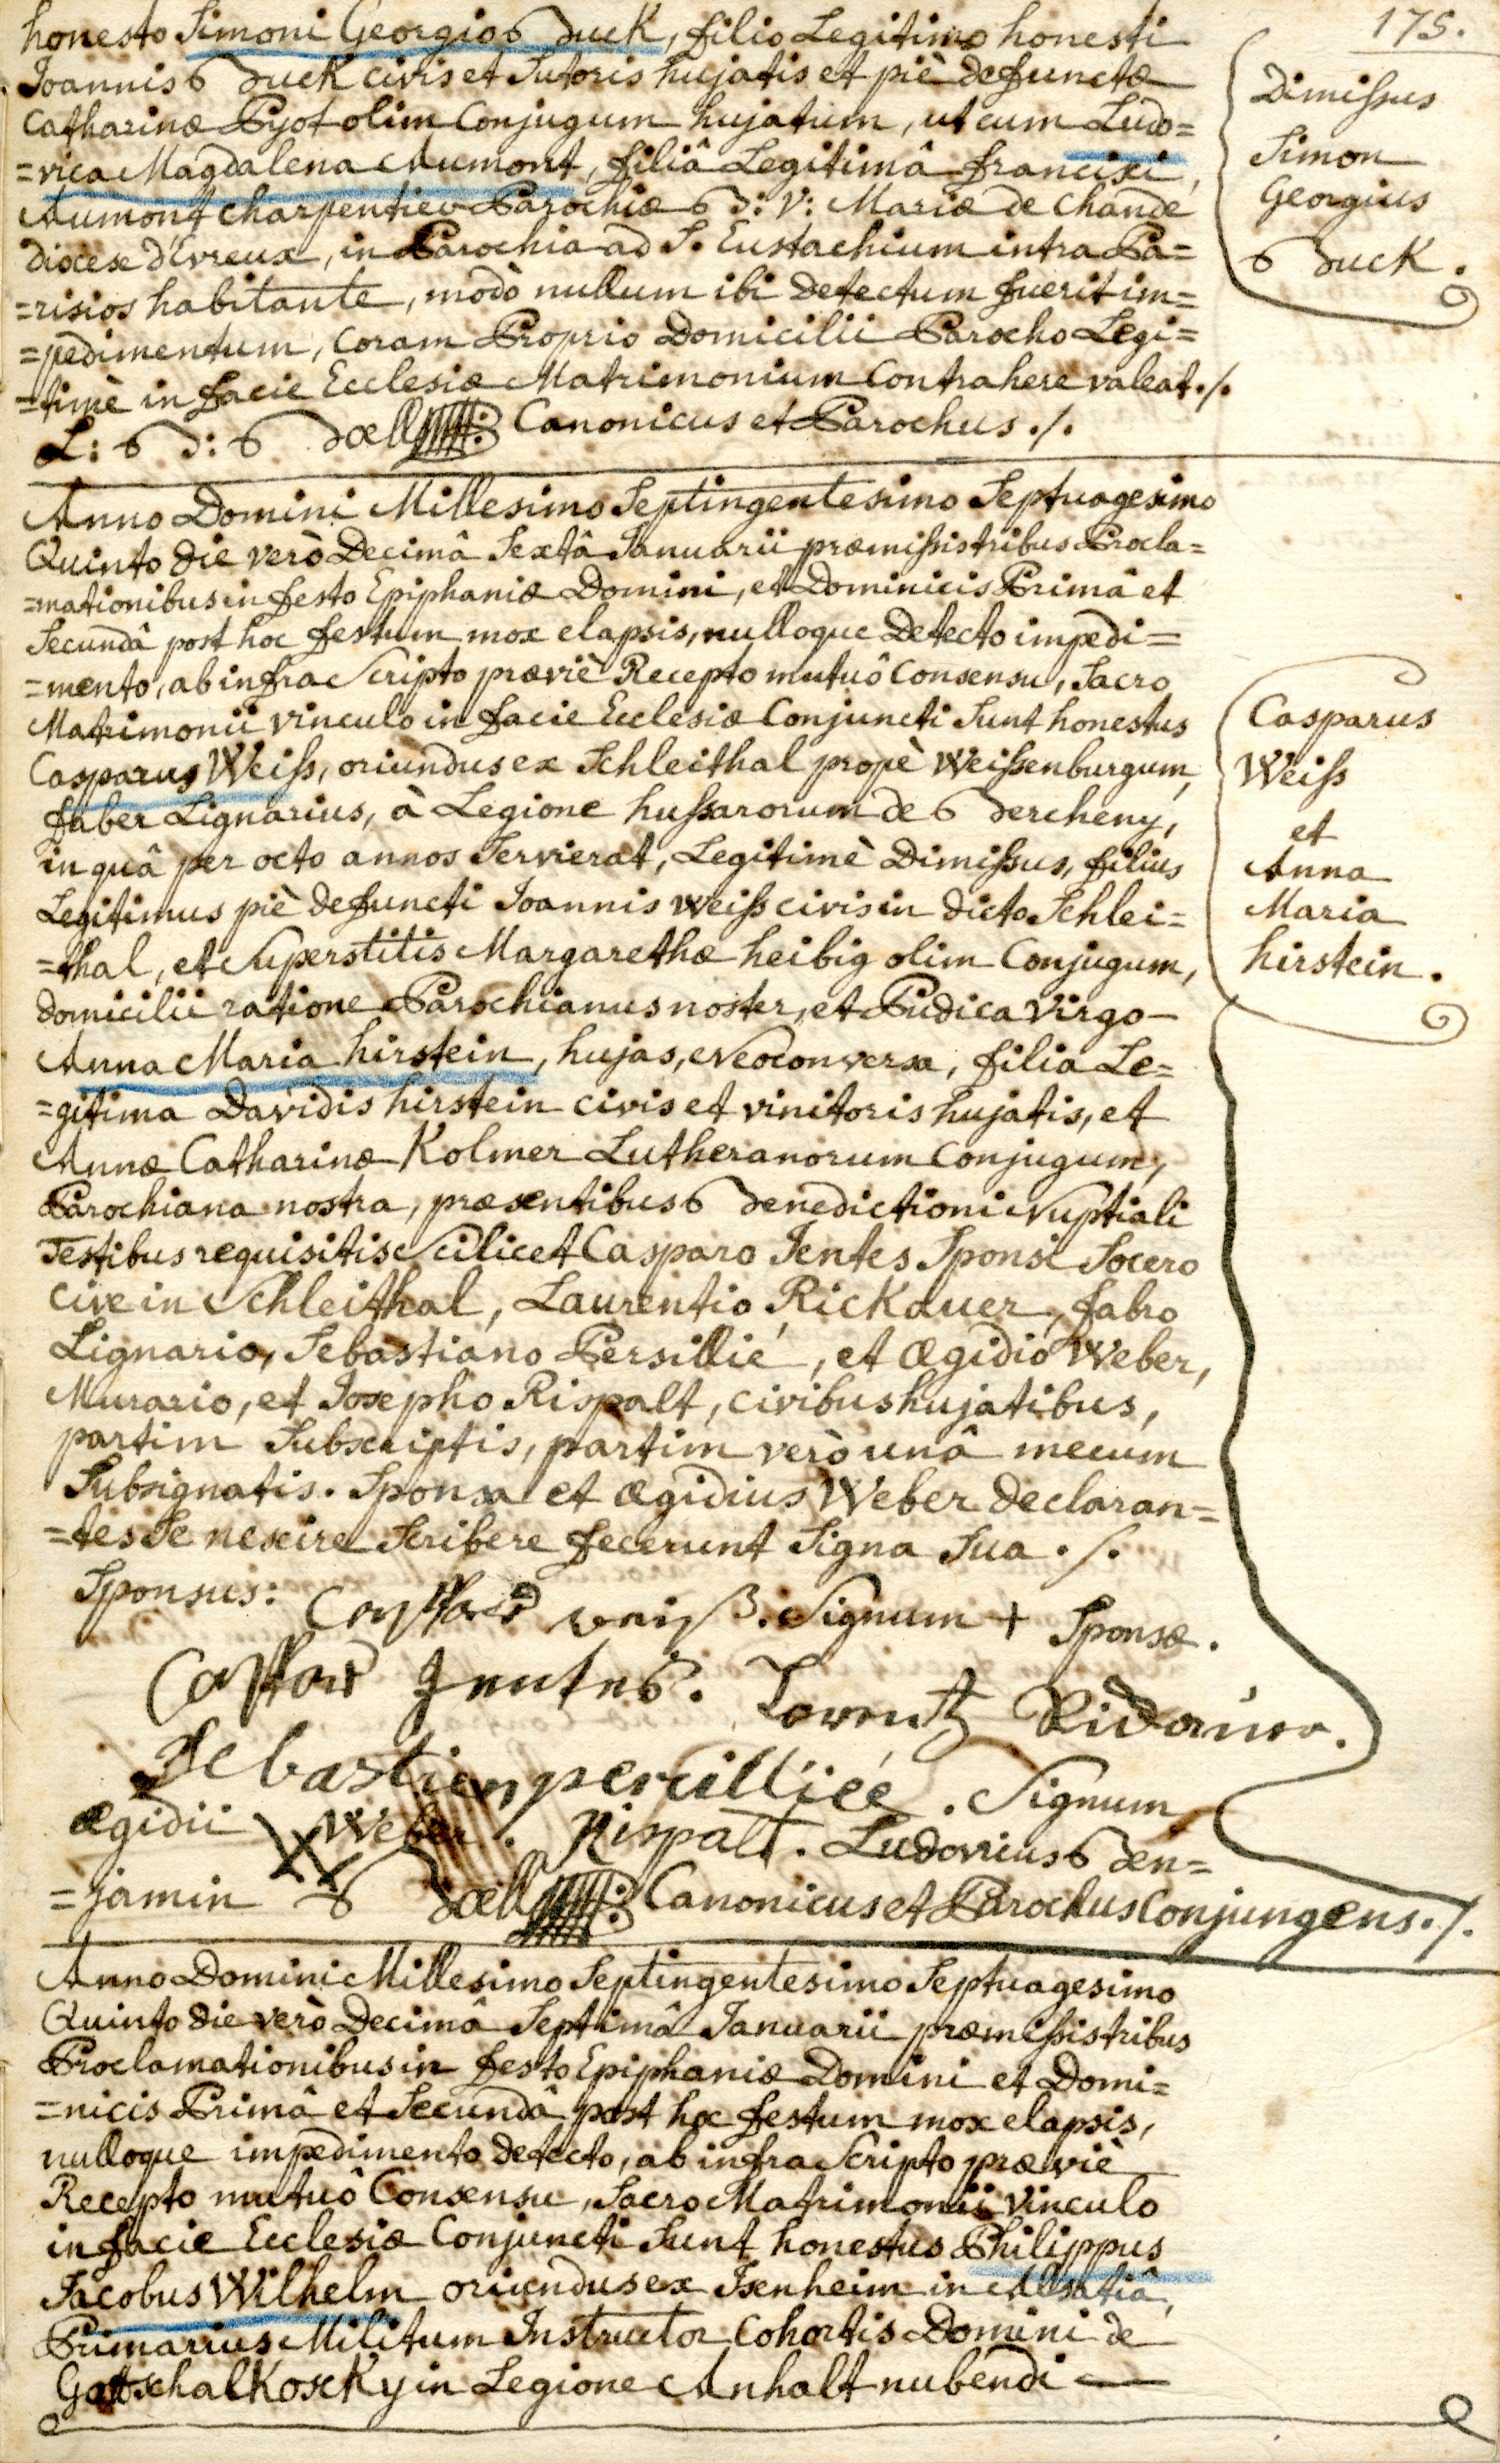 175.
honesto Simoni Georgio Buck, filio Legitimo honesti
Joannis Buck civis et Sutoris hujatis et piè defunctæ
Catharinæ Pyot olim Conjugum hujatum, ut cum Ludo=
=vica Magdalena Aumont, filiâ Legitimâ francisci
Aumont charpentier Parochiæ B: V: Mariæ de Chande
diocese d'Evreux, in Parochia ad S. Eustachium intra Pa=
=risios habitante, modò nullum ibi Detectum fuerit im=
=pedimentum, coram Proprio Domicilii Parocho Legi=
=timè in facie Ecclesiæ Matrimonium Contrahere valeat ./.
L: B: Bœll Canonicus et Parochus ./.
Dimissus
Simon
Georgius
Buck.
Anno Domini Millesimo Septingentesimo Septuagesimo
Quinto die verò Decimâ Sextâ Januarii præmissis tribus Procla=
=mationibus in festo Epiphaniæ Domini, et Dominicis Primâ et
Secundâ post hoc festum mox elapsis, nulloque Detecto impedi=
=mento, ab infra Scripto præviè Recepto mutuô Consensu, Sacro
Matrimonii vinculo in facie Ecclesiæ Conjuncti Sunt honestus
Casparus Weiss, oriundus ex Schleithal propè Weissenburgum,
faber Lignarius, à Legione hussarorum de Bercheny,
in quâ per octo annos Servierat, Legitimè Dimissus, filius
Legitimus piè defuncti Joannis Weiss civis in dicto Schlei=
=thal, et Superstitis Margarethæ heibig olim Conjugum,
domicilii ratione Parochianus noster, et Pudica Virgo
Anna Maria hirstein, hujas, Neoconversa, filia Le=
=gitima Davidis hirstein civis et vinitoris hujatis, et
Annæ Catharinæ Kolmer Lutheranorum Conjugum,
Parochiana nostra, præsentibus Benedictioni Nuptiali
Testibus requisitis Scilicet Casparo Jentes Sponsi Socero
cive in Schleithal, Laurentio Rickauer, fabro
Lignario, Sebastiano Persillié, et Ægidio Weber,
Murario, et Josepho Rispalt, civibus hujatibus,
partim Subscriptis, partim verò unâ mecum
Subsignatis. Sponsa et Ægidius Weber declaran=
=tes Se nescire Scribere fecerunt Signa Sua ./.
Casparus
Weiss
et
Anna
Maria
hirstein.
Sponsus: Casspar weiß. Signum + Sponsæ.
Casspar Jentes. Lorentz
Sebastien percilliéé. Signum
Ægidii XX Weber. Rispalt. Ludovicus Ben=
=jamin Bœll Canonicus et Parochus Conjungens ./.
Anno Domini Millesimo Septingentesimo Septuagesimo
Quinto die verò Decimâ Septimâ Januarii præmissis tribus
Proclamationibus in festo Epiphaniæ Domini et Domi=
=nicis Primâ et Secundâ post hoc festum mox elapsis,
nulloque impedimento detecto, ab infra Scripto præviè
Recepto mutuô Consensu, Sacro Matrimonii Vinculo
in facie Ecclesiæ Conjuncti Sunt honestus Philippus
Jacobus Wilhelm oriundus ex Isenheim in Alsatiâ,
Primarius Militum Instructor Cohortis Domini de
Gottschalkoscky in Legione Anhalt nubendi